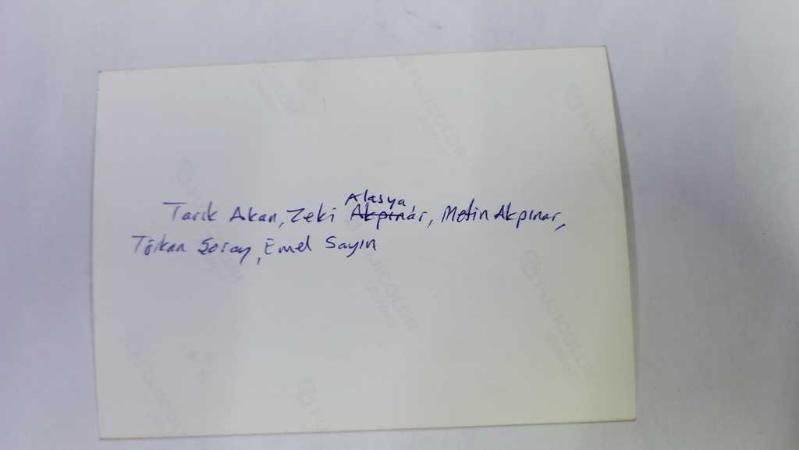 Alasya
Tarık Akan, Zeki Akpınar, Metin Akpınar,
Türkan Şoray, Emel Sayın